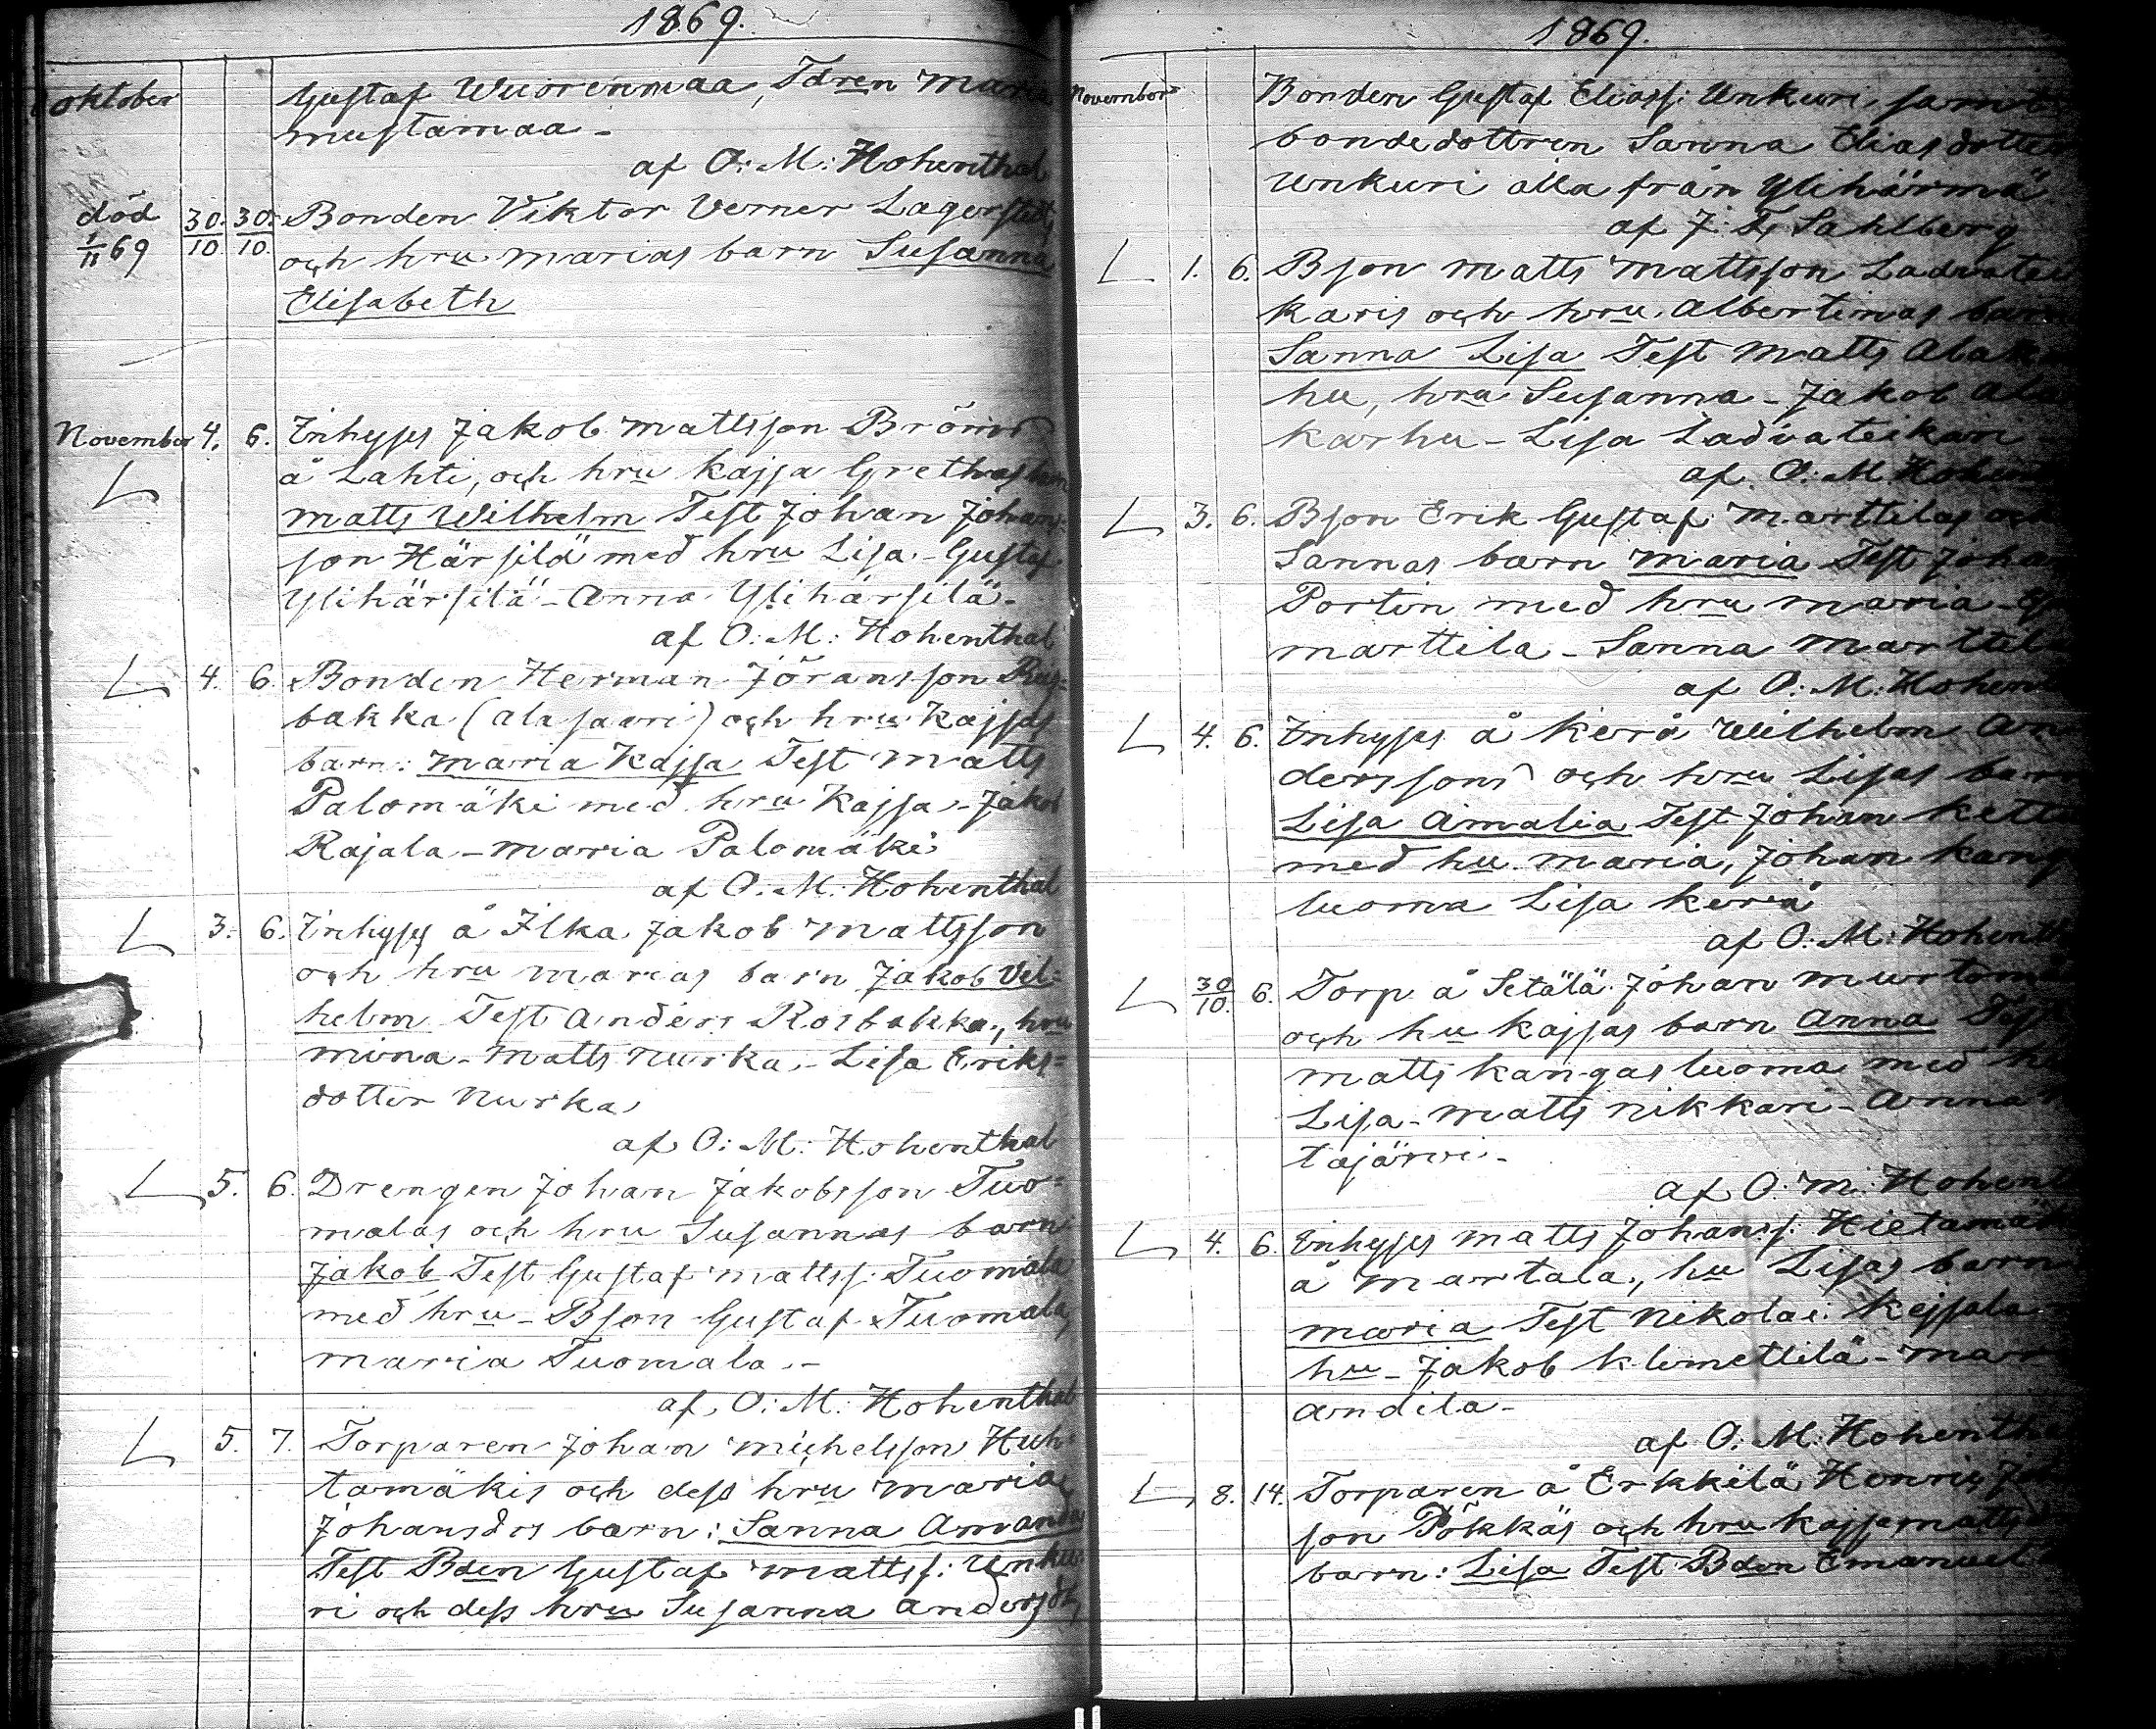 1869.
oktober Gustaf Wuorenmaa, Tdren Maria
mustamaa -
af O: M: Hohenthal
död 30. 30. Bonden Viktor Verner Lagerstedts
1/11 69 10 10. och hru marias barn Susanna
Elisabeth
November 4. 6. Inhyses Jakob mattsson Bröms
å Lahti, och hru kajsa Grethas barn
matts Wilhelm Test Johan Johans-
son Härsilä med hru Lisa - Gustaf
Ylihärsilä - Anna Ylihärsilä -
af O: M: Hohenthal
4. 6 Bonden Herman Jöransson Ros=
bakka (ala saari) och hru Kajsas
barn: maria Kajsa Test matts
Palomäki med hru Kajsa - Jakob
Rajala - maria Palomäki
af O. M. Hohenthal
3. 6. Inhyses å Ilka Jakob mattsson
och hru marias barn Jakob Vil=
helm Test Anders Rosbakka, hru
mina - Matts nurka - Lisa Eriks=
dotter nurka
af O: M: Hohenthal
5. 6. Drengen Johan Jakobsson Tuo=
malas och hru Susannas barn
Jakob Test Gustaf mattss: Tuomala
med hru - Bson Gustaf Tuomala,
maria Tuomala. -
af O: M: Hohenthal
5. 7. Torparen Johan michelsson Huh-
tamäkis och dess hru maria
Johansdrs barn: Sanna Amanda
Test Bden Gustaf mattss: Unku
ri och dess hru Susanna Andersdr,
1869.
November Bonden Gustaf Eliass: Unkuri, samt
bondedottren Sanna Eliasdotter
Unkuri alla från Ylihärmä
af J. F. Sahlberg
1. 6. Bson matts mattsson Ladvatei
karis och hru Albertinas barn
Sanna Lisa Test matts Alakar
hu, hru Susanna - Jakob Ala
karhu - Lisa Ladvateikari
af O: M Hohen
3. 6. Bson Erik Gustaf Marttilas och
Sannas barn maria Test Johan
Portin med hru maria -
marttila - Sanna marttila
af O: M: Hohen
4. 6. Inhyses å kerä Wilhelm An
derssons och hru Lisas barn
Lisa Amalia Test Johan ketto
med hu maria, Johan kang
luoma Lisa kerä
af O: M: Hohenth
30/10. 6. Torp. å Setälä Johan murtomä
och hu kajsas barn Anna Test
matts kangasluoma med h
Lisa - matts nikkari - Anna
tajärvi -
af O: M: Hohent
4. 6. Inhyses matts Johanss: Hietamäk
å martala, hu Lisas barn
maria Test Nikolai kejsala
hu - Jakob klemettilä - mar
andila -
af O: M: Hohentha
8. 14. Torparen å Erkkilä Henric
son Pökkäs och hru kajsa matts
barn: Lisa Test Bden Emanuel